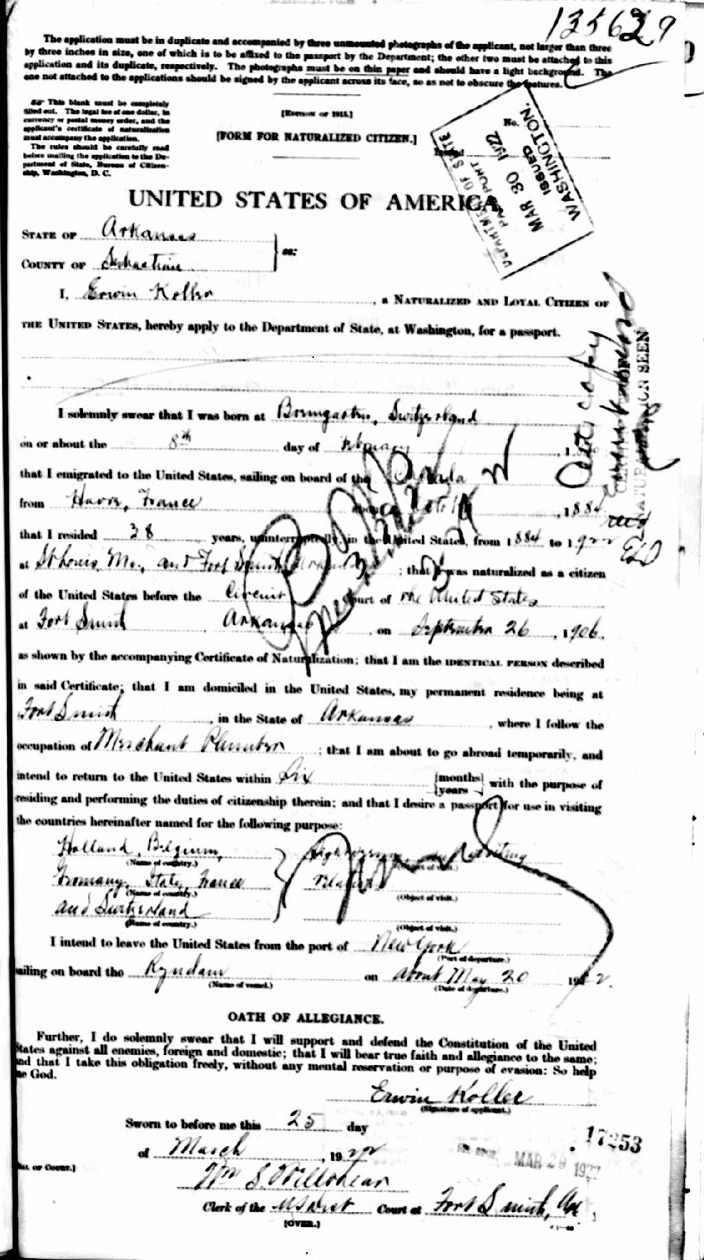 135629
The application must be in duplicate and accompanied by three unmounted photographs of the applicant, not larger than three
by three inches in size, one of which is to be affixed to the passport by the Department; the other two must be attached to this
application and its duplicate, respectively. The photographs must be on thin paper and should have a light background. The
one not attached to the applications should be signed by the applicant across its face, so as not to obscure the features.
This blank must be completely
filled out. The legal fee of one dollar, in
currency or postal money order, and the
applicant's certificate of naturalization
must accompany the application.
The rules should be carefully read
before mailing the application to the De-
partment of State, Bureau of Citizen-
ship, Washington, D. C.
[EDITION OF 1915.]
[FORM FOR NATURALIZED CITIZEN.]
No.
DEPARTMENT OF STATE
PASSPORT
MAR 30 1922
ISSUED
WASHINGTON.
UNITED STATES OF AMERICA.
STATE OF Arkansas
COUNTY OF Sebastian
ss:
I, Erwin Koller, a NATURALIZED AND LOYAL CITIZEN OF
THE UNITED STATES, hereby apply to the Department of State, at Washington, for a passport.
I solemnly swear that I was born at Bremgarten, Switzerland
on or about the 8th day of February
that I emigrated to the United States, sailing on board of the
from Havre, France , 1884
that I resided 38 years, uninterruptedly, in the United States, from 1884 to 1922
at St Louis, Mo., and Fort Smith ; that I was naturalized as a citizen
of the United States before the Circuit Court of the United States
at Fort Smith Arkansas, on September 26, 1906,
as shown by the accompanying Certificate of Naturalization; that I am the IDENTICAL PERSON described
in said Certificate; that I am domiciled in the United States, my permanent residence being at
Fort Smith, in the State of Arkansas, where I follow the
occupation of Merchant Plumber; that I am about to go abroad temporarily, and
intend to return to the United States within Six {months/years} with the purpose of
residing and performing the duties of citizenship therein; and that I desire a passport for use in visiting
the countries hereinafter named for the following purpose:
Holland, Belgium, visiting
(Name of country.) (Object of visit.)
Germany, Italy, France relatives
(Name of country.) (Object of visit.)
and Switzerland
(Name of country.) (Object of visit.)
I intend to leave the United States from the port of New York
(Port of departure.)
sailing on board the Ryndam on about May 20 1922.
(Name of vessel.) (Date of departure.)
OATH OF ALLEGIANCE.
Further, I do solemnly swear that I will support and defend the Constitution of the United
States against all enemies, foreign and domestic; that I will bear true faith and allegiance to the same;
and that I take this obligation freely, without any mental reservation or purpose of evasion: So help
me God.
Erwin Koller
(Signature of applicant.)
Sworn to before me this 25 day
of March, 1922
17253
MAR 29 1922
Wm S. Wellshear
Clerk of the US Dist Court at Fort Smith, Ark,
[OVER.]